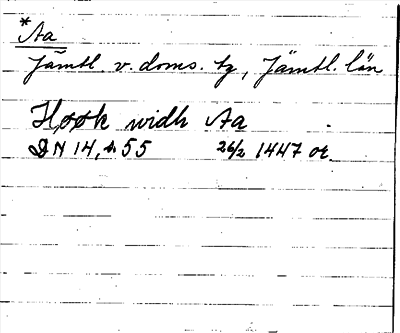 *Aa
Jämtl. v. doms. tg, Jämtl. län
Høøk widh Aa
DN 14, s 55 26/2 1447 or.